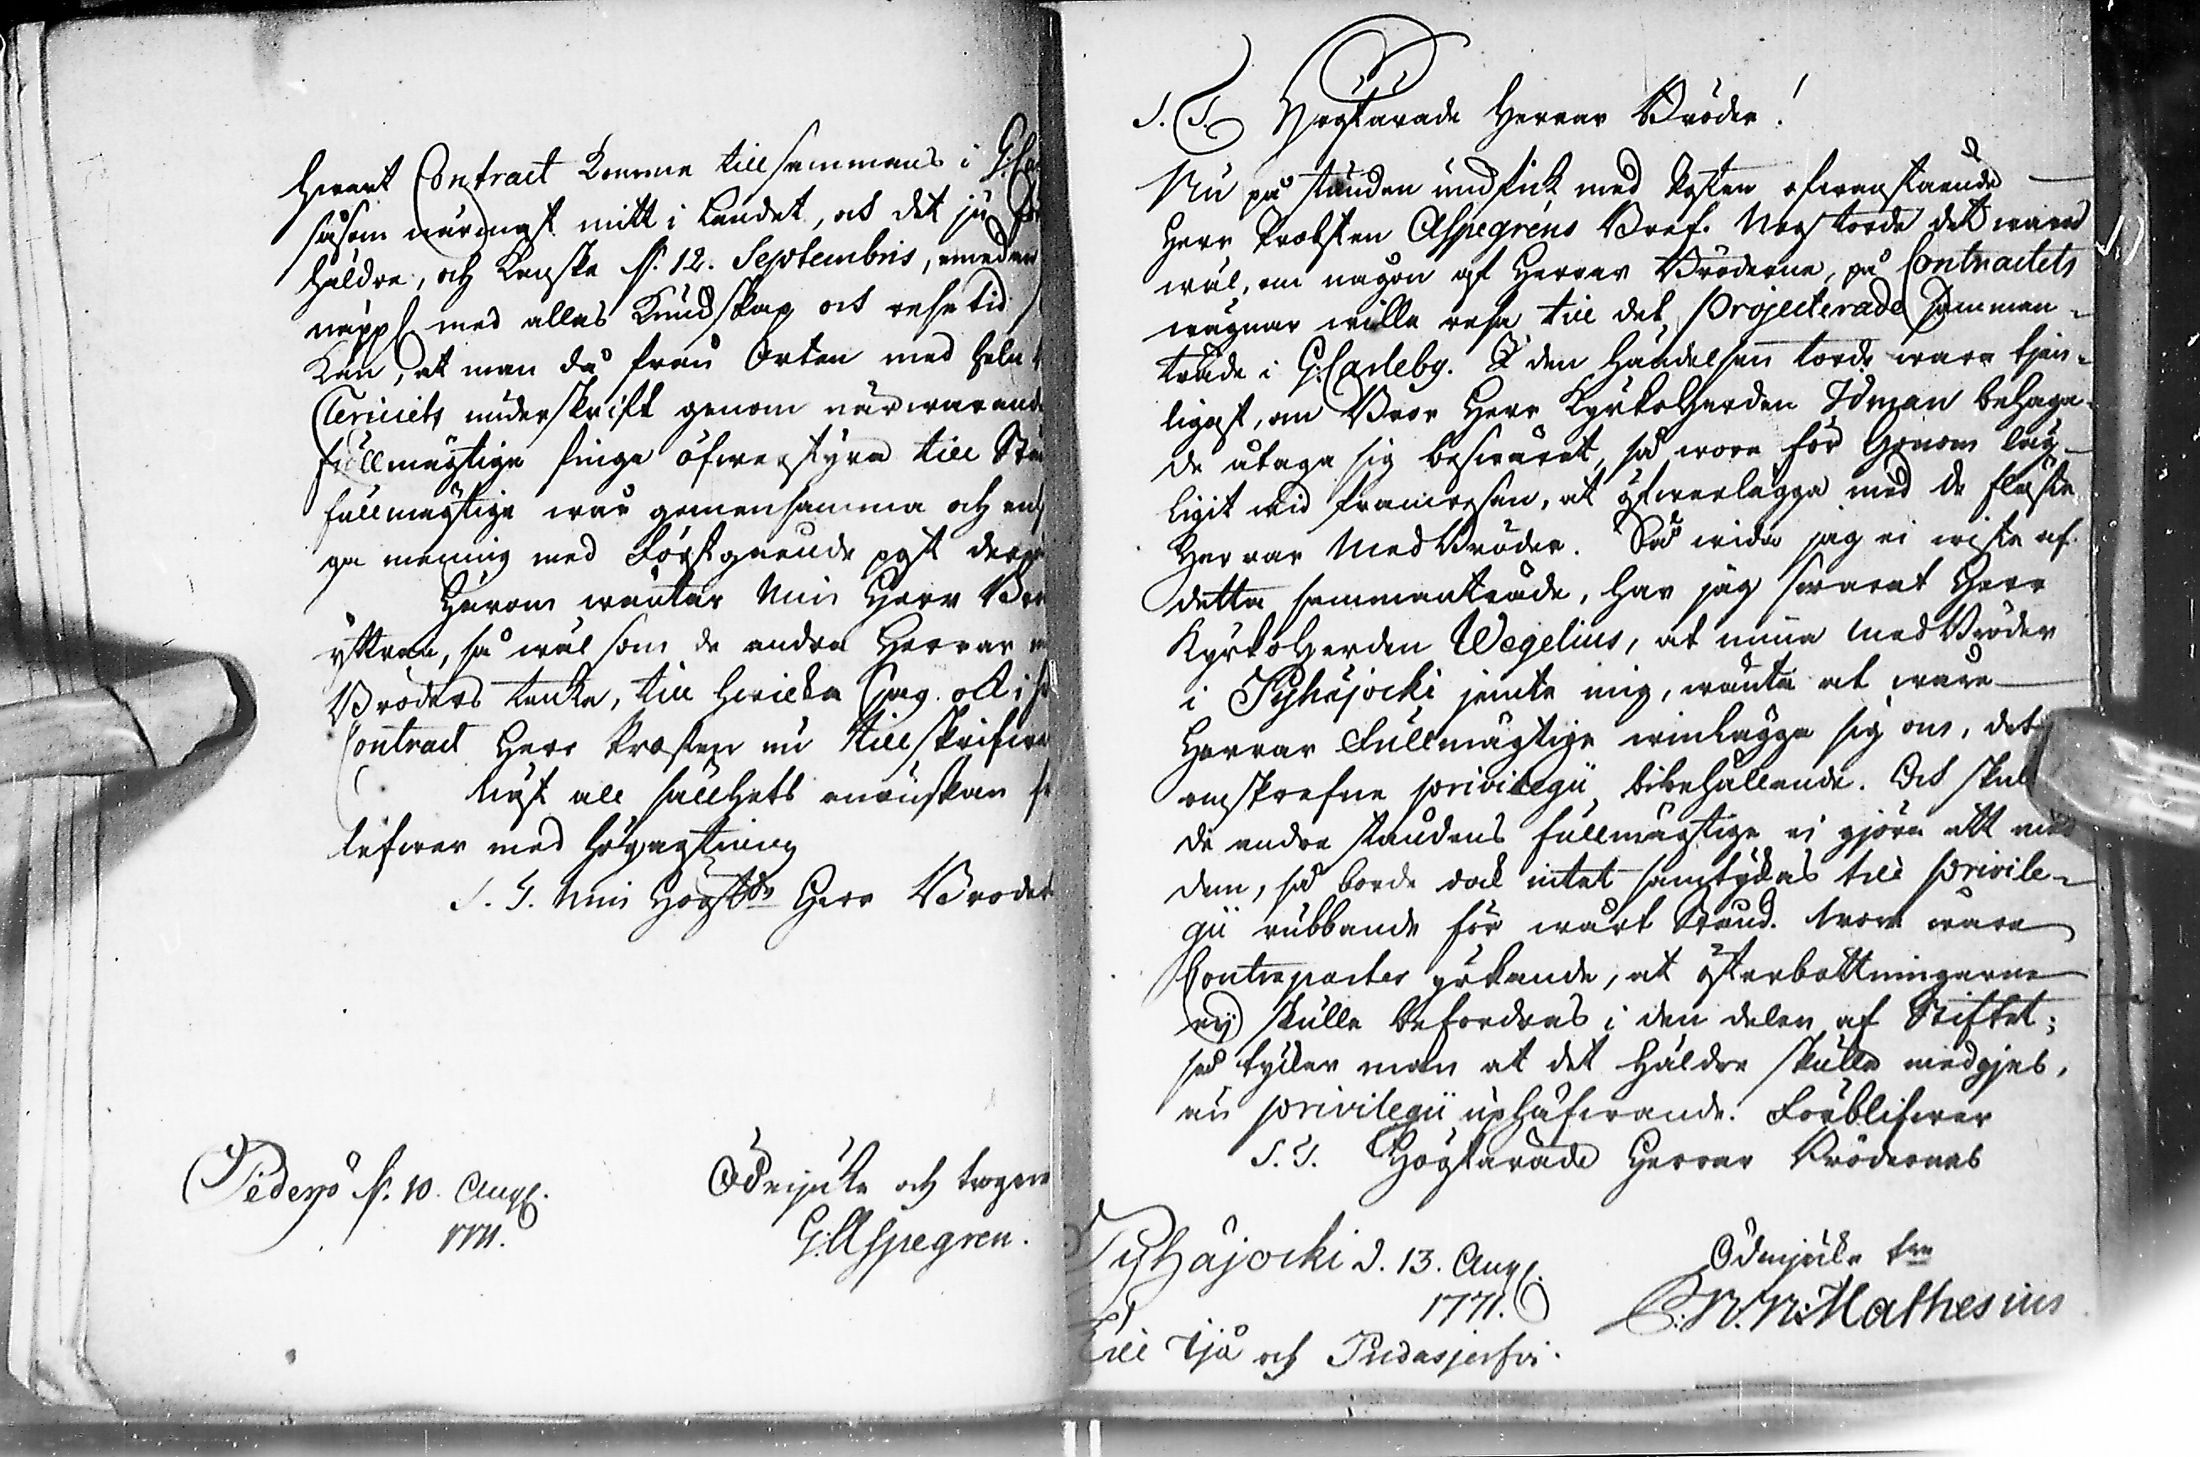 hwart Contract komme tillsammans i G:Ca
såsom närmast mitt i Landet, och det ju för
häldre, och kanske d. 12. Septembris, emedan
näppl. med allas kundskap och resetid
kan, at man då från Orten med hela
Clericiets underskrift genom närwarande
fullmägtige finge öfwerstyra till Stå
fullmägtige wår gemensamma och en
ga mening med Författande post derpå
Härom wäntar Min Herr Bro
yttran, så wäl som de andra Herrar
Bröders tanka, till hwilka
Contract Herr Probsten nu tillskrifwer
Näst all sällhets önskan
lefwer med högagtning
S. T. Min Högtd Herr Broders
Pedersö d. 10. Aug.
1771.
Ödmjuke och trogne
G: Aspegren.
S. T. Högtärade Herrar Bröder!
Nu på stunden undfick med Posten ofwanstående
Herr Probsten Aspegréns Bref. Nog torde det wara
wäl, om någon af Herrar Bröderne, på Contractets
wägnar wille resa till det projecterade samman-
träde i G:Carleby. I den händelsen torde wara tjen-
ligast, om Bror Herr Kyrkoherden Idman behaga-
de åtaga sig beswäret, så wore för honom läg-
ligit wid framresan, at öfwerlägga med de flästa
Herrar MedBröder. Så wida jag ei wiste af
detta sammanträde, har jag swarat Herr
Kyrkoherden Wegelius, at mina MedBröder
i Pyhäjocki jemte mig, wänta at wåre
Herrar Fullmägtige winlägga sig om, det
omskrefne privilegii bibehållande. Och skul
de andra ståndens fullmägtige ei gjöra ett med
dem, så borde dock intet samtyckas till privile-
gii rubbande för wårt Stånd. Wore wåre
Contraparter yrkande, at österbottningarne
ey skulle befordras i den delen af Stiftet;
så tycker man at det häldre skulle medgjes,
än privilegii uphäfwande. Förblifwer
S. T. Högtärade Herrar Brödernas
Pyhäjocki d. 13. Aug.
1771.
Ödmjuke tre
N: Mathesius
Till Ijå och Pudasjerfwi.